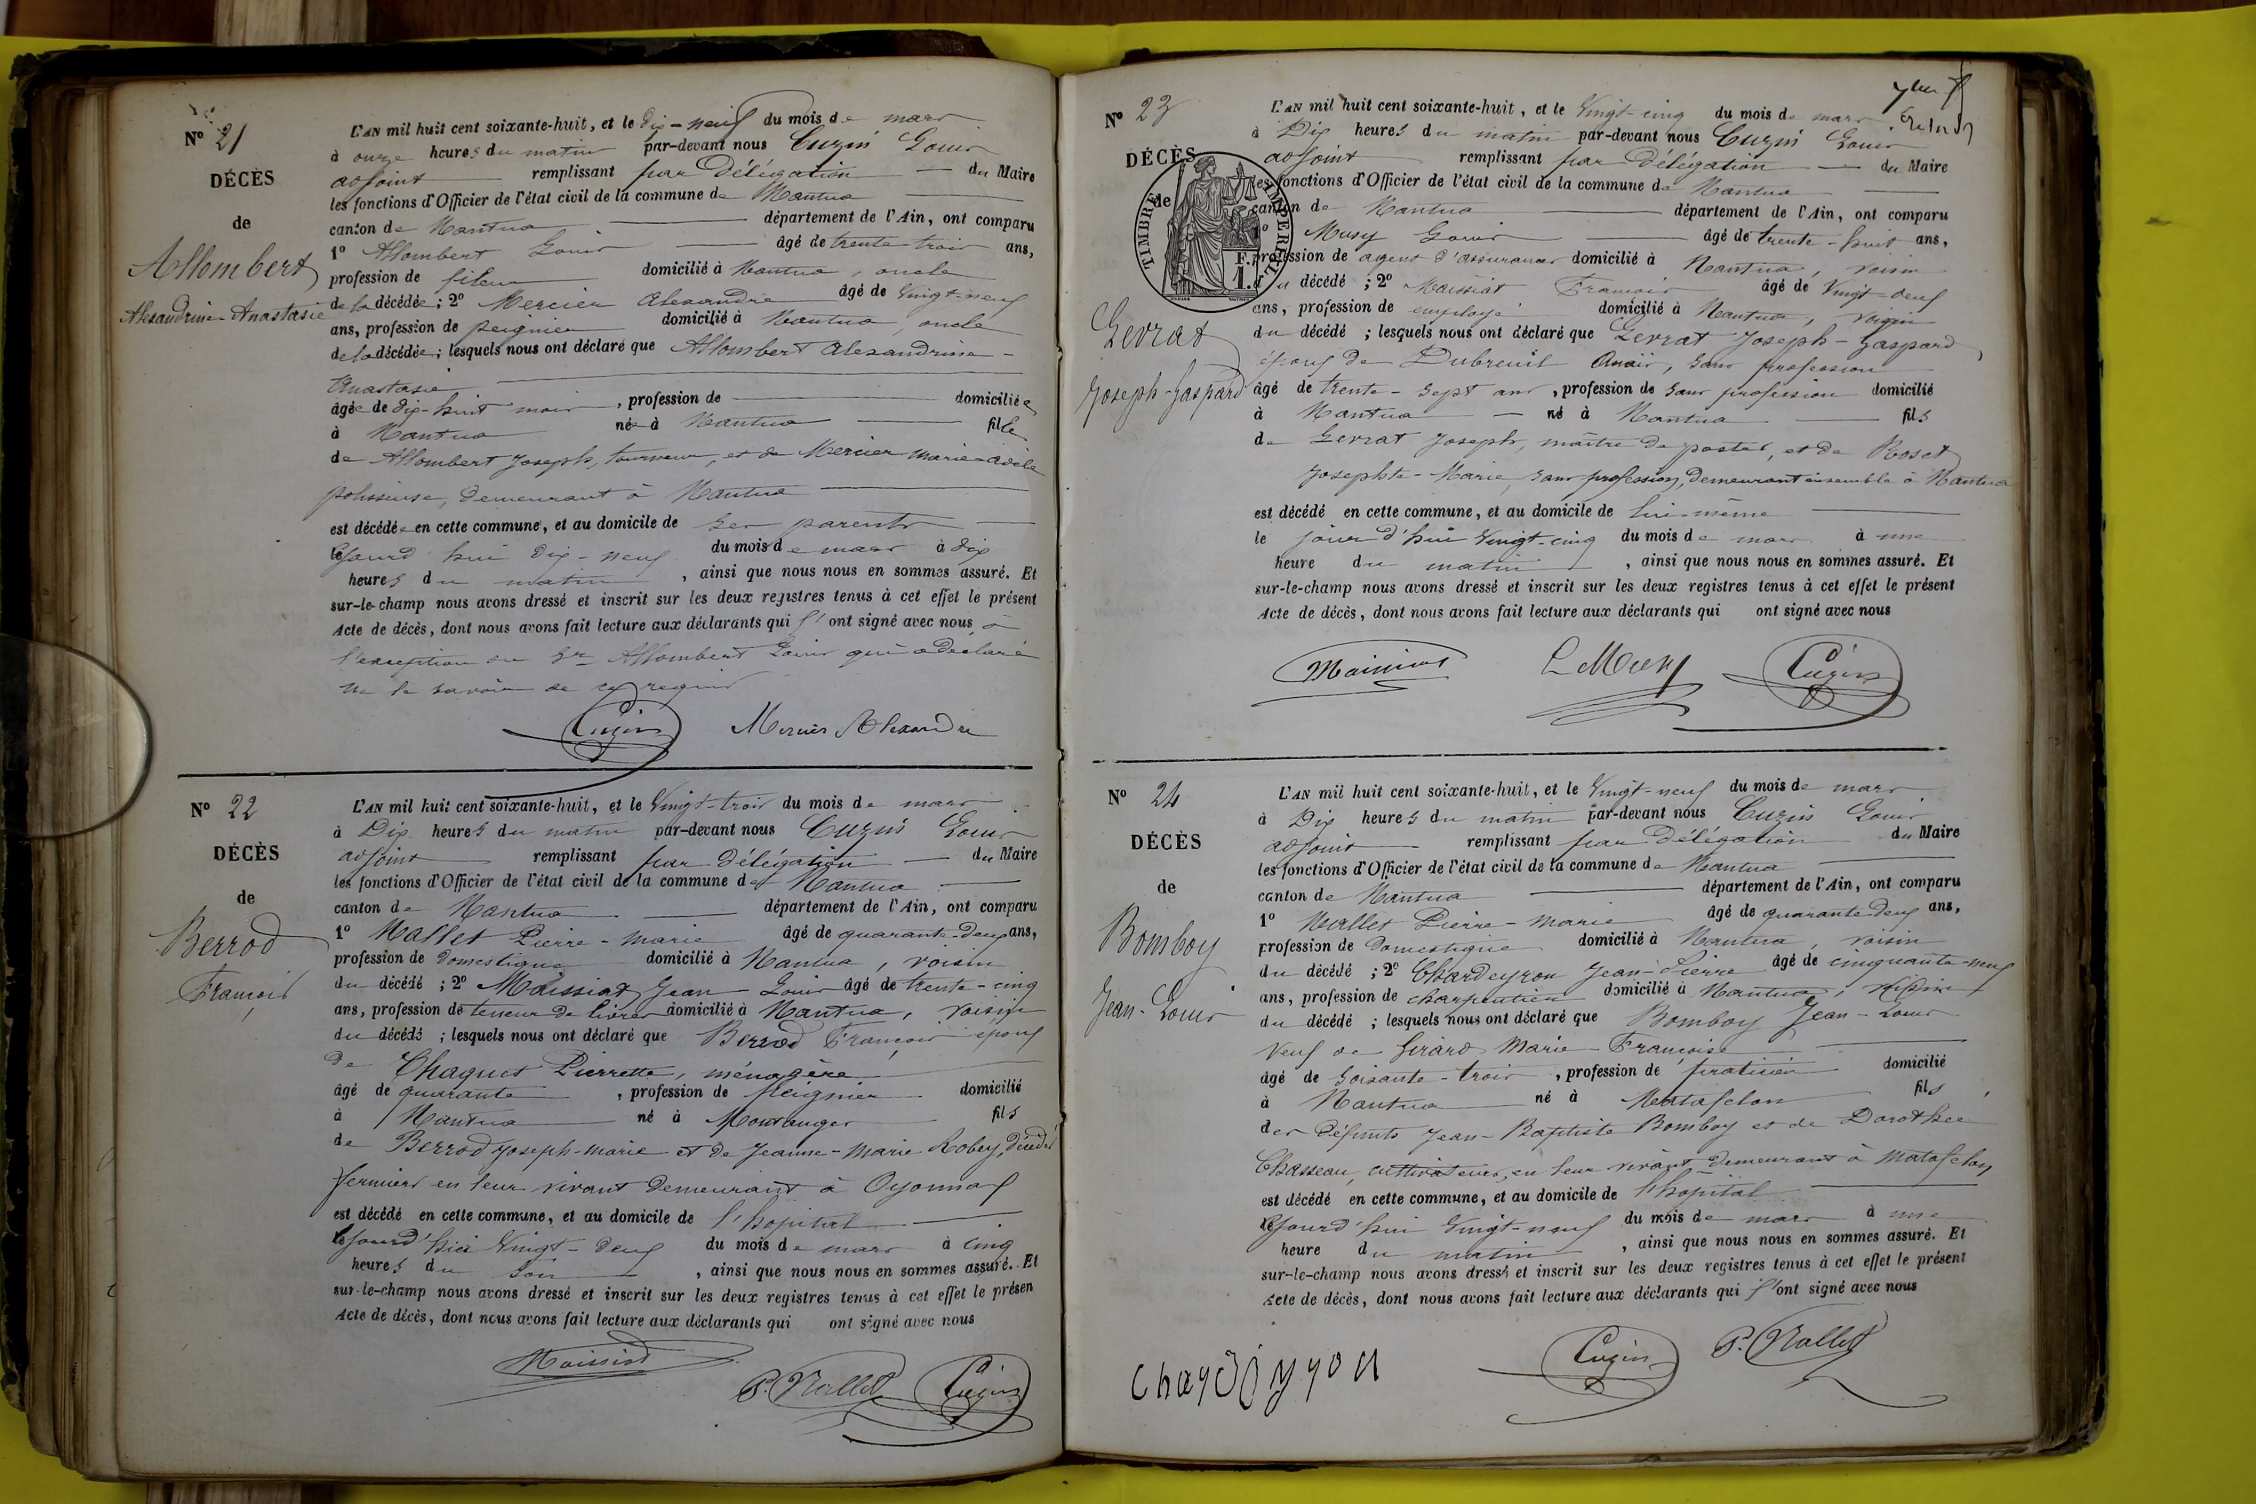 N° 21
DÉCÈS
de
Allombert
Alexandrine Anastasie
L'AN mil huit cent soixante-huit, et le dix-neuf du mois de mars
à onze heures du matin par-devant nous Cuzin Louis
adjoint remplissant par délégation du Maire
les fonctions d'Officier de l'état civil de la commune de Nantua
canton de Nantua département de l'Ain, ont comparu
1° Allombert Louis âgé de trente trois ans,
profession de fileur domicilié à Nantua, oncle
de la décédée; 2° Mercier Alexandre âgé de vingt-neuf
ans, profession de peignier domicilié à Nantua, oncle
de la décédée; lesquels nous ont déclaré que Allombert Alexandrine
Anastasie
âgée de dix-huit mois, profession de domiciliée
à Nantua née à Nantua fille
de Allombert Joseph, tourneur, et de Mercier Marie-Adèle
polisseuse, demeurant à Nantua
est décédée en cette commune, et au domicile de ses parents
le jourd'hui dix-neuf du mois de mars à dix
heures du matin, ainsi que nous nous en sommes assuré. Et
sur-le-champ nous avons dressé et inscrit sur les deux registres tenus à cet effet le présent
Acte de décès, dont nous avons fait lecture aux déclarants qui l'ont signé avec nous à
l'exception du Sr Allombert Louis qui a déclaré
ne le savoir de ce requis
Cuzin Mercier Alexandre
N° 22
DÉCÈS
de
Berrod
François
L'AN mil huit cent soixante-huit, et le vingt-trois du mois de mars
à dix heures du matin par-devant nous Cuzin Louis
adjoint remplissant par délégation du Maire
les fonctions d'Officier de l'état civil de la commune de Nantua
canton de Nantua département de l'Ain, ont comparu
1° Nallet Pierre-Marie âgé de quarante-deux ans,
profession de domestique domicilié à Nantua, voisin
du décédé; 2° Maissiat Jean Louis âgé de trente-cinq
ans, profession de teneur de livres domicilié à Nantua, voisin
du décédé; lesquels nous ont déclaré que Berrod François époux
de Chaquet Pierrette, ménagère
âgé de quarante, profession de peignier domicilié
à Nantua né à Montanger fils
de Berrod Joseph-Marie et de Jeanne-Marie Robey, décédés
fermiers en leur vivant demeurant à Oyonnax
est décédé en cette commune, et au domicile de l'hopital
le jourd'hier vingt-deux du mois de mars à cinq
heures du soir, ainsi que nous nous en sommes assuré. Et
sur-le-champ nous avons dressé et inscrit sur les deux registres tenus à cet effet le présen
Acte de décès, dont nous avons fait lecture aux déclarants qui ont signé avec nous
Maissiat P. Nallet Cuzin
N° 23
DÉCÈS
de
TIMBRE IMPERIAL
F. 1.
Gevrat
Joseph-Gaspard
L'AN mil huit cent soixante-huit, et le vingt-cinq du mois de mars
à dix heures du matin par-devant nous Cuzin Louis
adjoint remplissant par délégation du Maire
les fonctions d'Officier de l'état civil de la commune de Nantua
canton de Nantua département de l'Ain, ont comparu
1° Musy Louis âgé de trente-huit ans,
profession de agent d'assurances domicilié à Nantua, voisin
du décédé; 2° Maissiat François âgé de vingt-neuf
ans, profession de employé domicilié à Nantua, voisin
du décédé; lesquels nous ont déclaré que Gevrat Joseph-Gaspard
époux de Dubreuil Anaïs, sans profession
âgé de trente-sept ans, profession de sans profession domicilié
à Nantua né à Nantua fils
de Gevrat Joseph, maître de postes, et de Roset
Josephte-Marie, sans profession, demeurant ensemble à Nantua
est décédé en cette commune, et au domicile de lui-même
le jour d'hui vingt-cinq du mois de mars à une
heure du matin, ainsi que nous nous en sommes assuré. Et
sur-le-champ nous avons dressé et inscrit sur les deux registres tenus à cet effet le présent
Acte de décès, dont nous avons fait lecture aux déclarants qui ont signé avec nous
Maissiat L Musy Cuzin
N° 24
DÉCÈS
de
Bomboy
Jean-Louis
L'AN mil huit cent soixante-huit, et le vingt-neuf du mois de mars
à dix heures du matin par-devant nous Cuzin Louis
adjoint remplissant par délégation du Maire
les fonctions d'Officier de l'état civil de la commune de Nantua
canton de Nantua département de l'Ain, ont comparu
1° Nallet Pierre-Marie âgé de quarante-deux ans,
profession de domestique domicilié à Nantua, voisin
du décédé; 2° Chardeyron Jean-Pierre âgé de cinquante-neuf
ans, profession de charpentier domicilié à Nantua, voisin
du décédé; lesquels nous ont déclaré que Bomboy Jean-Louis
veuf de Girard Marie-Françoise
âgé de soixante-trois, profession de praticien domicilié
à Nantua né à Matafelon fils
des défunts Jean-Baptiste Bomboy et de Dorothée
Chasseau, cultivateurs, en leur vivant demeurant à Matafelon
est décédé en cette commune, et au domicile de l'hopital
le jourd'hui vingt-neuf du mois de mars à une
heure du matin, ainsi que nous nous en sommes assuré. Et
sur-le-champ nous avons dressé et inscrit sur les deux registres tenus à cet effet le présent
Acte de décès, dont nous avons fait lecture aux déclarants qui l'ont signé avec nous
Chardeyron Cuzin P. Nallet